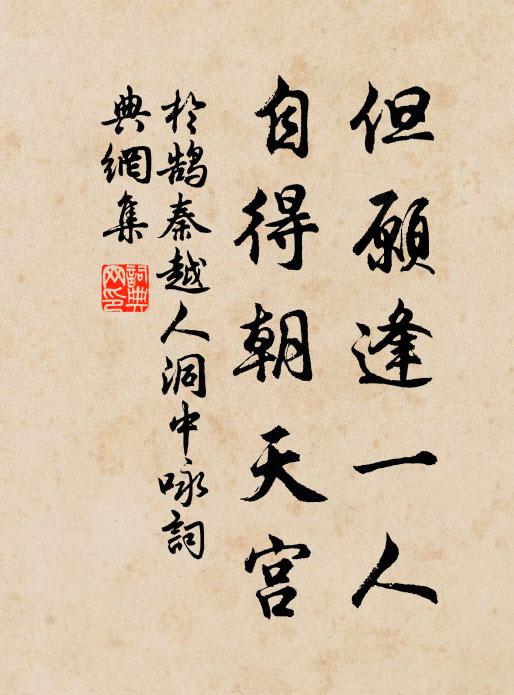 但願逢一人
自得朝天宮
於鵠秦越人洞中咏詞
典網集
詞典網印